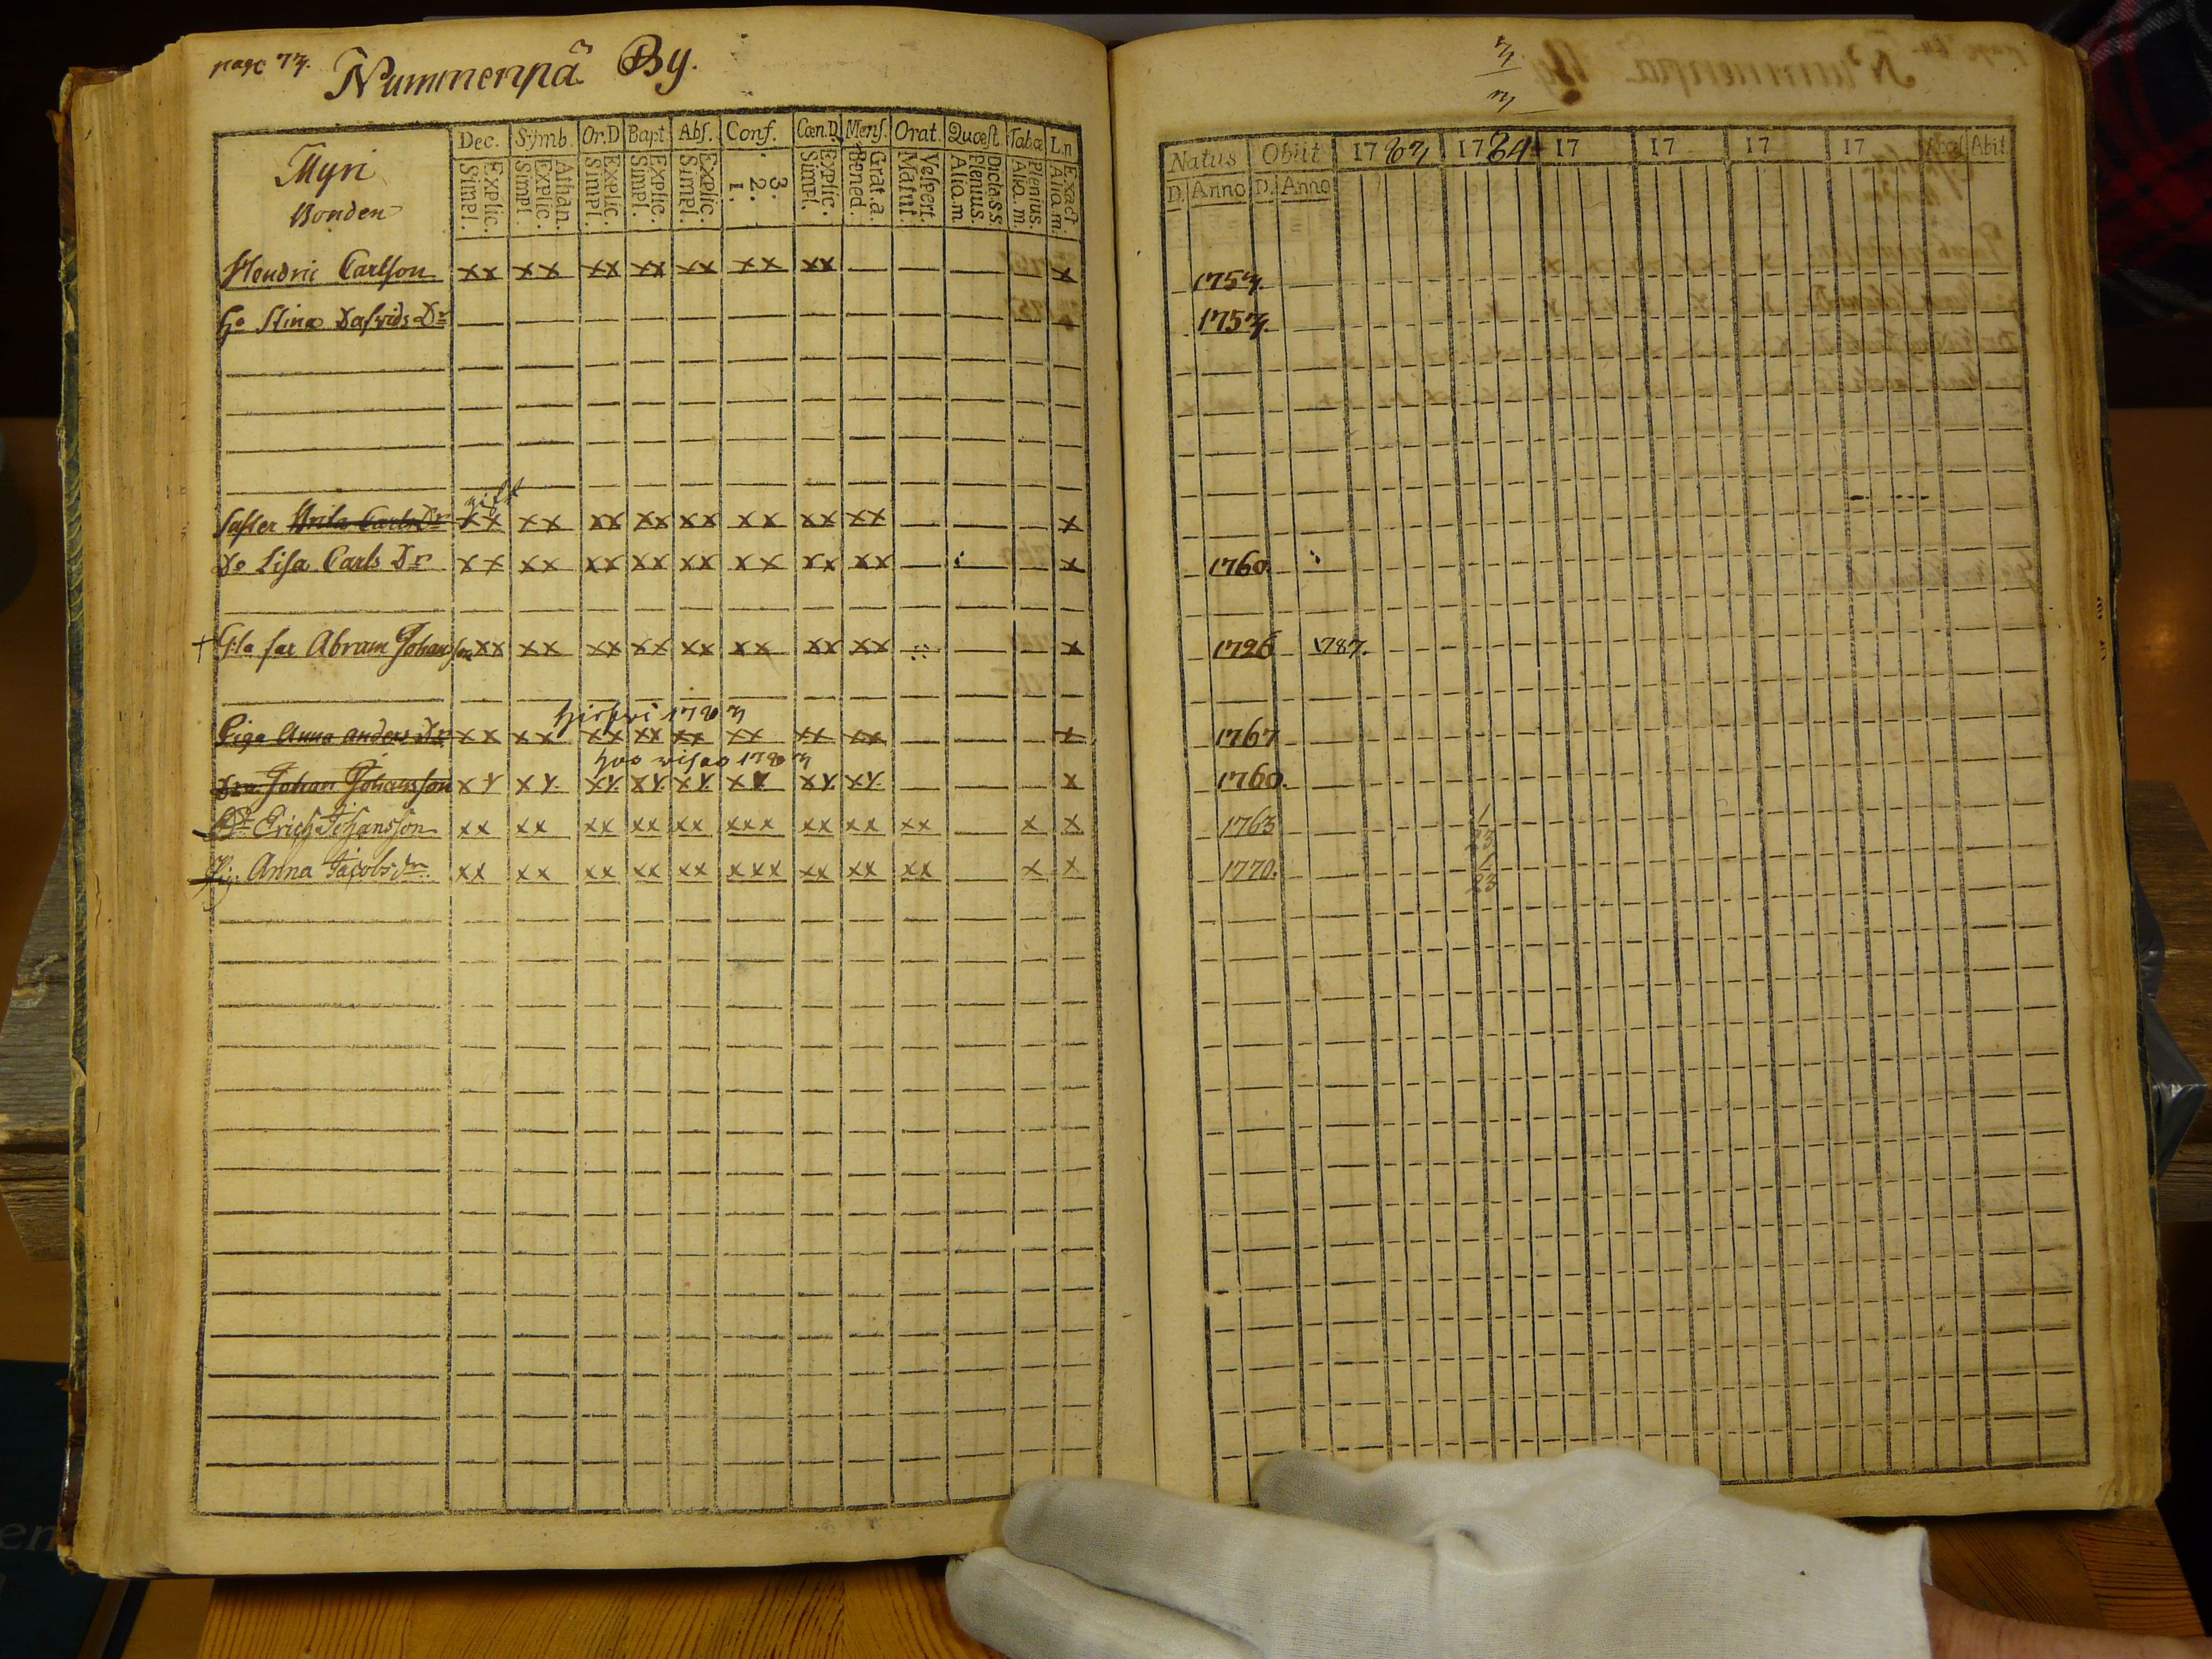 page 77.
Nummenpä By.
Myri
Bonden
Dec. Symb. Or.D Bapt. Abs. Conf. Cœn.D. Mens. Orat. Quœst. Tabœ L.n
Simpl. Explic. Simpl. Explic. Athan. Simpl. Explic. Simpl. Explic. Simpl. Explic. 1. 2. 3. Simpl. Explic. Bened. Grat.a. Matut. Vespert. Aliq.m. Plenius. Dicta.s.s. Aliq.m. Plenius. Aliq.m. Exact.
Hendric Carlson xx xx xx xx xx xx xx x
Ho Stina Dafvids Dr
gift
Syster Brita Carls Dr xx xx xx xx xx xx xx xx x
Do Lisa Carls Dr xx xx xx xx xx xx xx xx x
+ G:la far Abram Johansson xx xx xx xx xx xx xx xx x
1787
Piga Anna Anders Dr xx xx xx xx xx xx xx xx x
1787
Johan Johansson xx xx xx xx xx xx xx xx x
Dr Erich Johansson xx xx xx xx xx xxx xx xx xx x x
Pig. Anna Jacobs dr xx xx xx xx xx xxx xx xx xx x x
Natus Obiit 1783 1784 17 17 17 17 Acces Abit
D. Anno D. Anno
1757.
1757.
1760.
1726 1787.
1767
1760.
1763 1
23
1770. 1
23